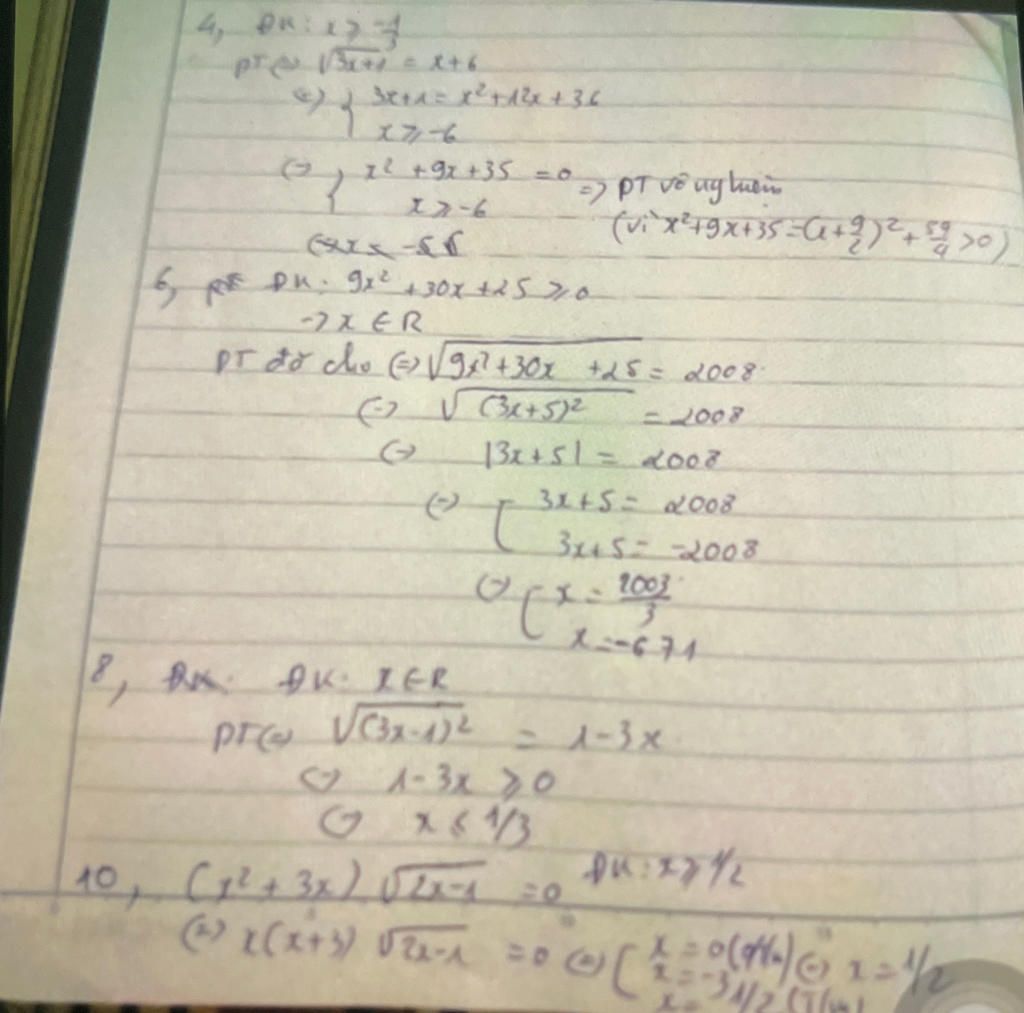 4, ĐK: x ≥ -1/3
PT (=) √(3x+1) = x+6
(=) { 3x+1 = x² + 12x + 36
x ≥ -6
(=) { x² + 9x + 35 = 0 => PT vô nghiệm
x ≥ -6 (vì x²+9x+35 = (x+9/2)² + 59/4 > 0)
6, ĐK: 9x² + 30x + 25 ≥ 0
-> x ∈ R
PT đã cho (=) √(9x²+30x+25) = 2008
(=) √((3x+5)²) = 2008
(=) |3x+5| = 2008
(=) [ 3x+5 = 2008
3x+5 = -2008
(=) [ x = 2003/3
x = -671
8, ĐK: x ∈ R
PT (=) √((3x-1)²) = 1-3x
(=) 1-3x ≥ 0
(=) x ≤ 1/3
10, (x² + 3x) √(2x-1) = 0 ĐK: x ≥ 1/2
(=) x(x+3) √(2x-1) = 0 (=) [ x = 0 (=) x = 1/2
x = -3
x = 1/2 (T/m)